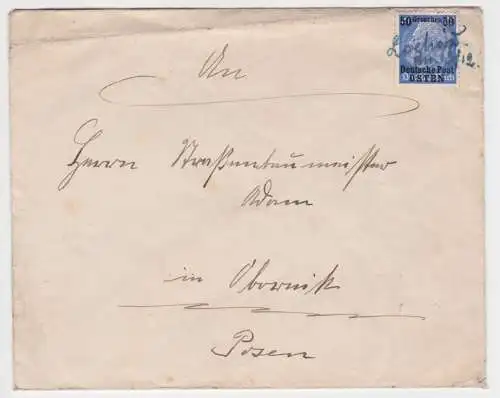 50 Groschen 50
Deutsche Post
OSTEN
An
Herrn Straßenbaumeister
Adam
in Obornik
Posen